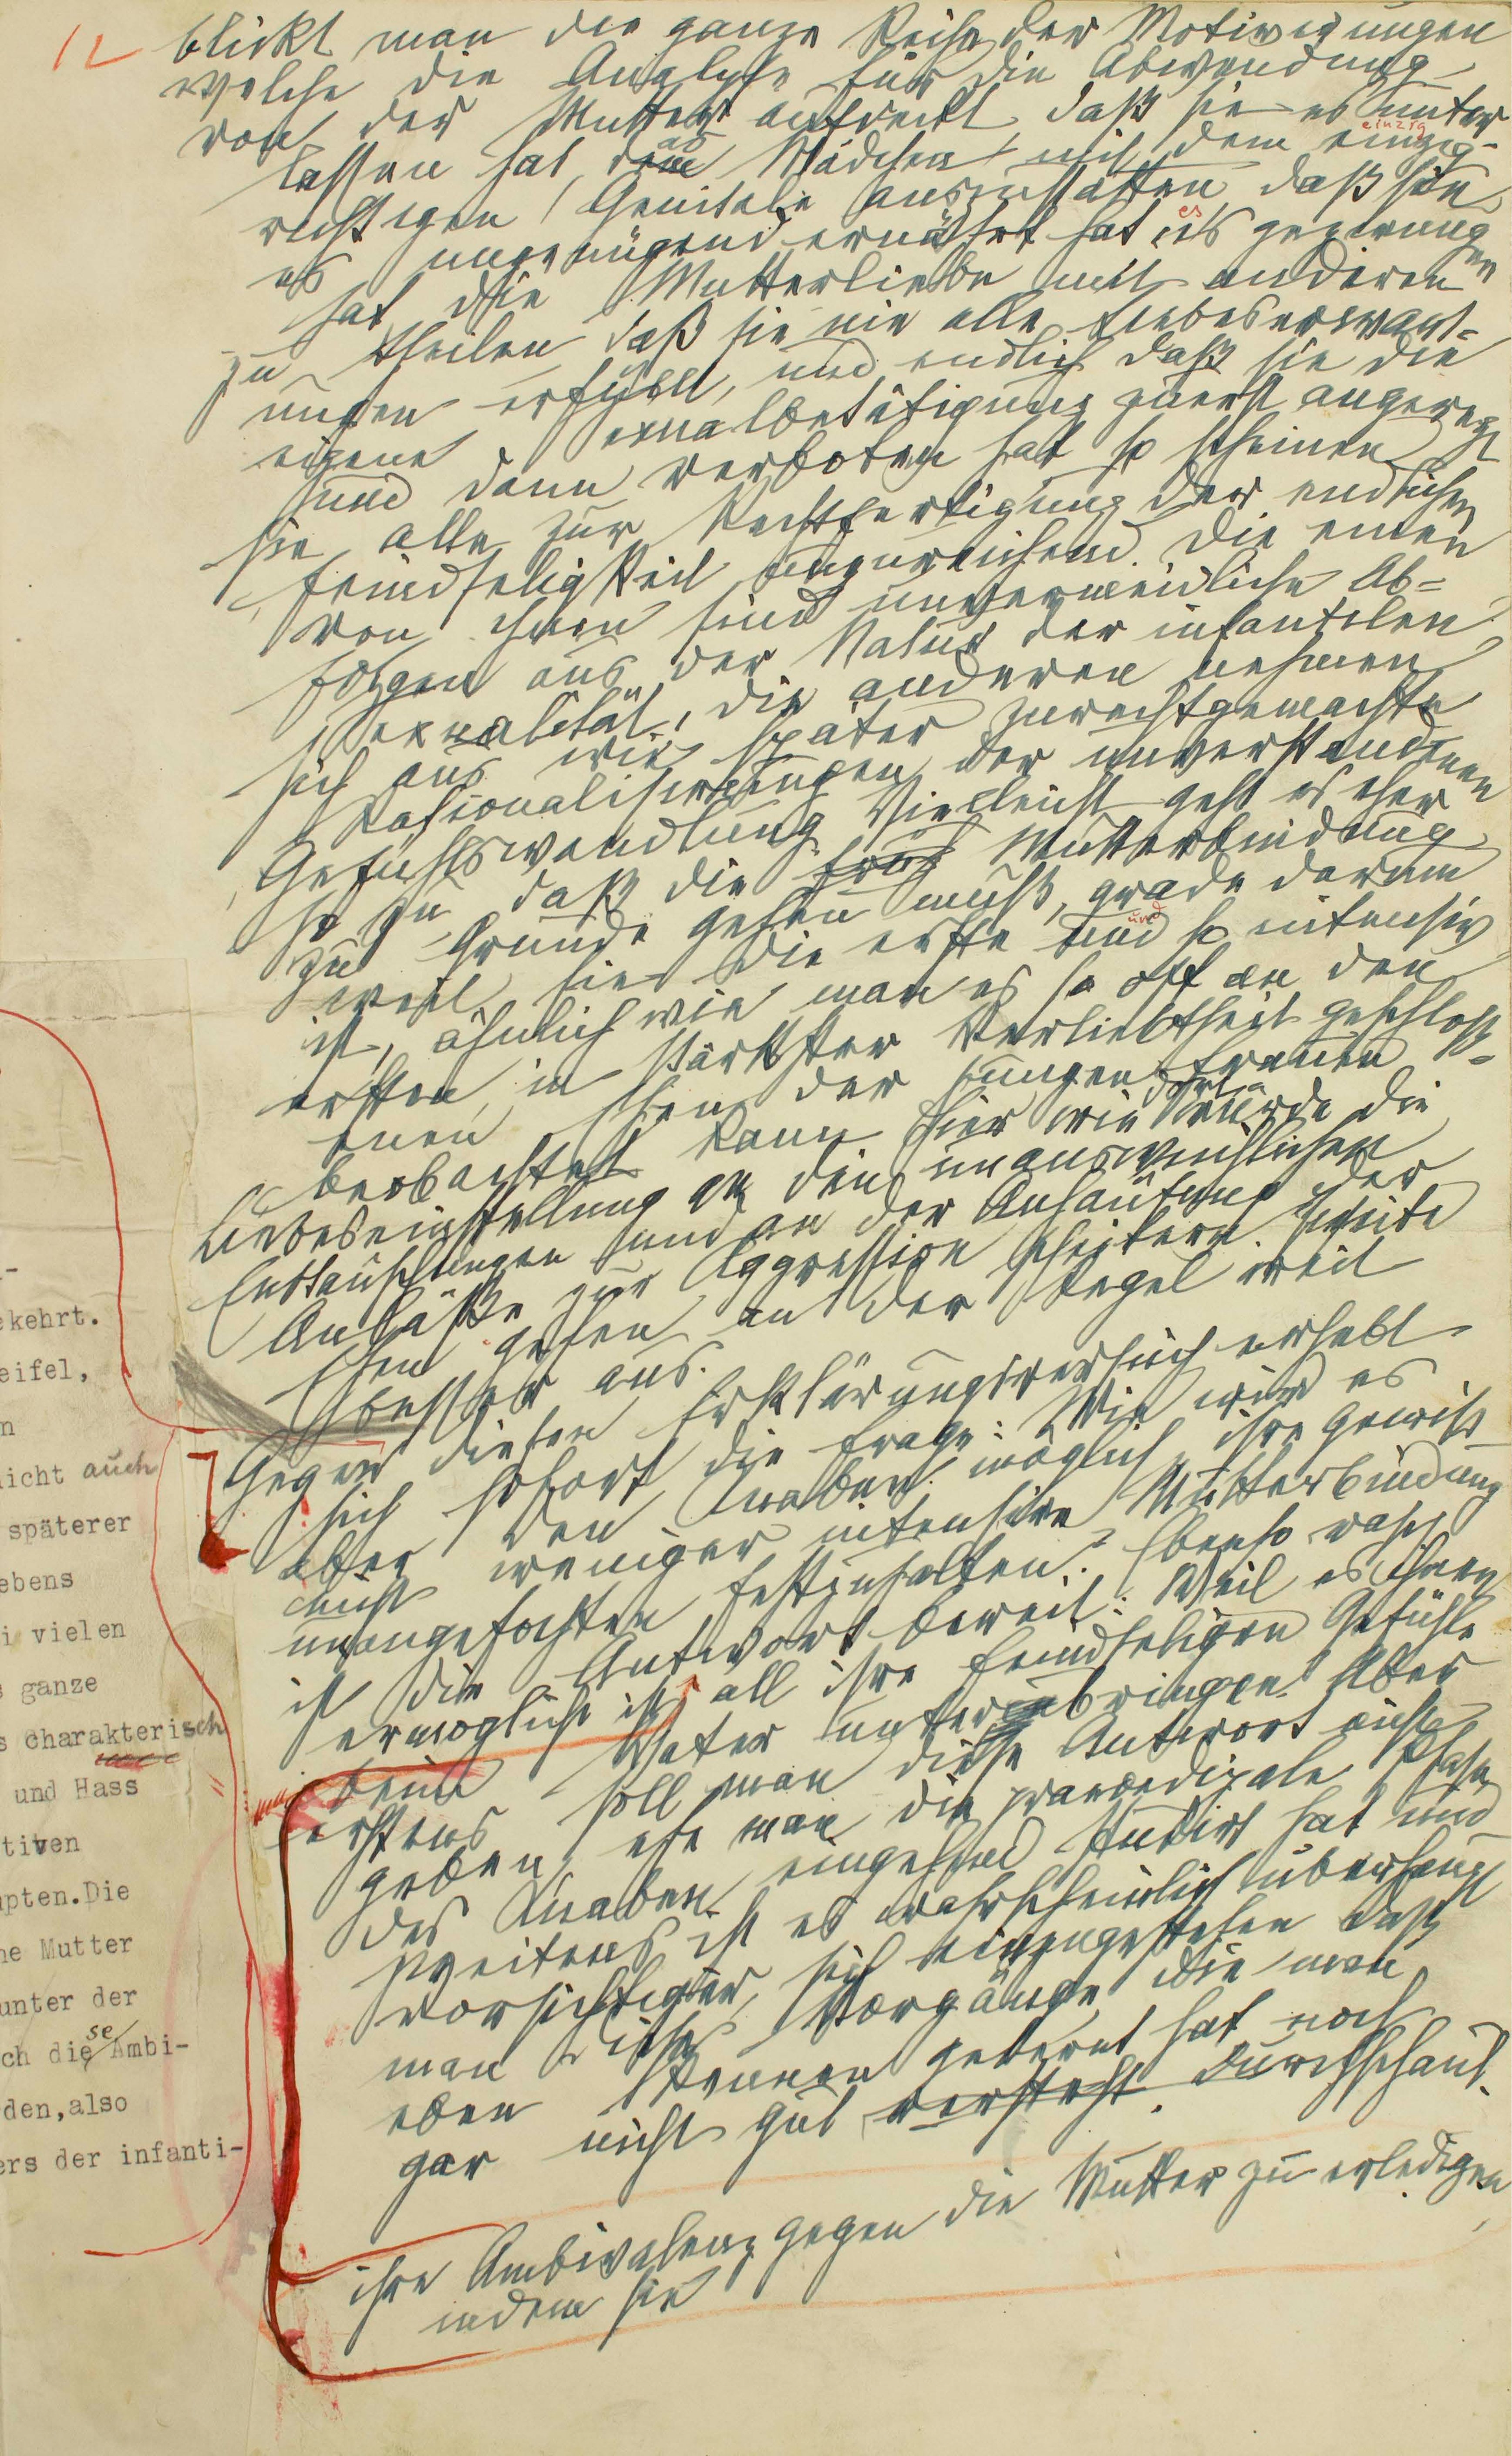 12 blickt man die ganze Reihe der Motivirungen
welche die Analyse für die Abwendung
von der Mutter aufdeckt, daß sie es unter
einzig
lassen hat, das Mädchen mit dem einzig-
richtigen Genitale auszustatten, daß sie
es ungenügend ernährt hat, es gezwungen
hat die Mutterliebe mit anderen
zu theilen daß sie nie alle Liebeserwart-
ungen erfüllt, und endlich daß sie die
eigene Sexualbetätigung zuerst angeregt
und dann verboten hat so scheinen
sie alle zur Rechtfertigung der endlichen
Feindseligkeit unzureichend. Die einen
von ihnen sind unvermeidliche Ab-
folgen aus der Natur der infantilen
Sexualität, die anderen nehmen
sich aus wie später zurechtgemachte
Rationalisirungen der unverstandenen
Gefühlswandlung. Vielleicht geht es eher
so zu daß die Mutterbindung
zu Grunde gehen muß, grade darum
weil sie die erste und so intensiv
ist, ähnlich wie man es so oft an den
ersten, in stärkster Verliebtheit geschloss-
enen Ehen der jungen Frauen
beobachtet kann. Hier wie dort würde die
Liebeseinstellung an den unausweichlichen
Enttäuschungen und an der Anhäufung der
Anläße zur Aggression scheitern. Zweite
Ehen gehen in der Regel weit
besser aus.
Gegen diesen Erklärungsversuch erhebt
sich sofort die Frage: Wie wird es
den Knaben möglich, ihre gewiss
aber nicht weniger intensive Mutterbindung
unangefochten festzuhalten? Ebenso rasch
ist die Antwort bereit: Weil es ihnen
ermöglicht ist, all ihre feindseligen Gefühle
beim Vater unterzubringen. Aber
erstens soll man diese Antwort nicht
geben, ehe man die praeoedipale Phase
des Knaben eingehend studirt hat und
zweitens ist es wahrscheinlich überhaupt
vorsichtiger, sich einzugestehen daß
man diese Vorgänge, die man
eben kennen gelernt hat noch
gar nicht gut versteht. durchschaut.
ihre Ambivalenz gegen die Mutter zu erledigen
indem sie
ekehrt.
eifel,
n
icht auch
späterer
ebens
i vielen
s ganze
s charakterisch
und Hass
tiven
upten. Die
ne Mutter
unter der
se
ch die Ambi-
den, also
ers der infanti-